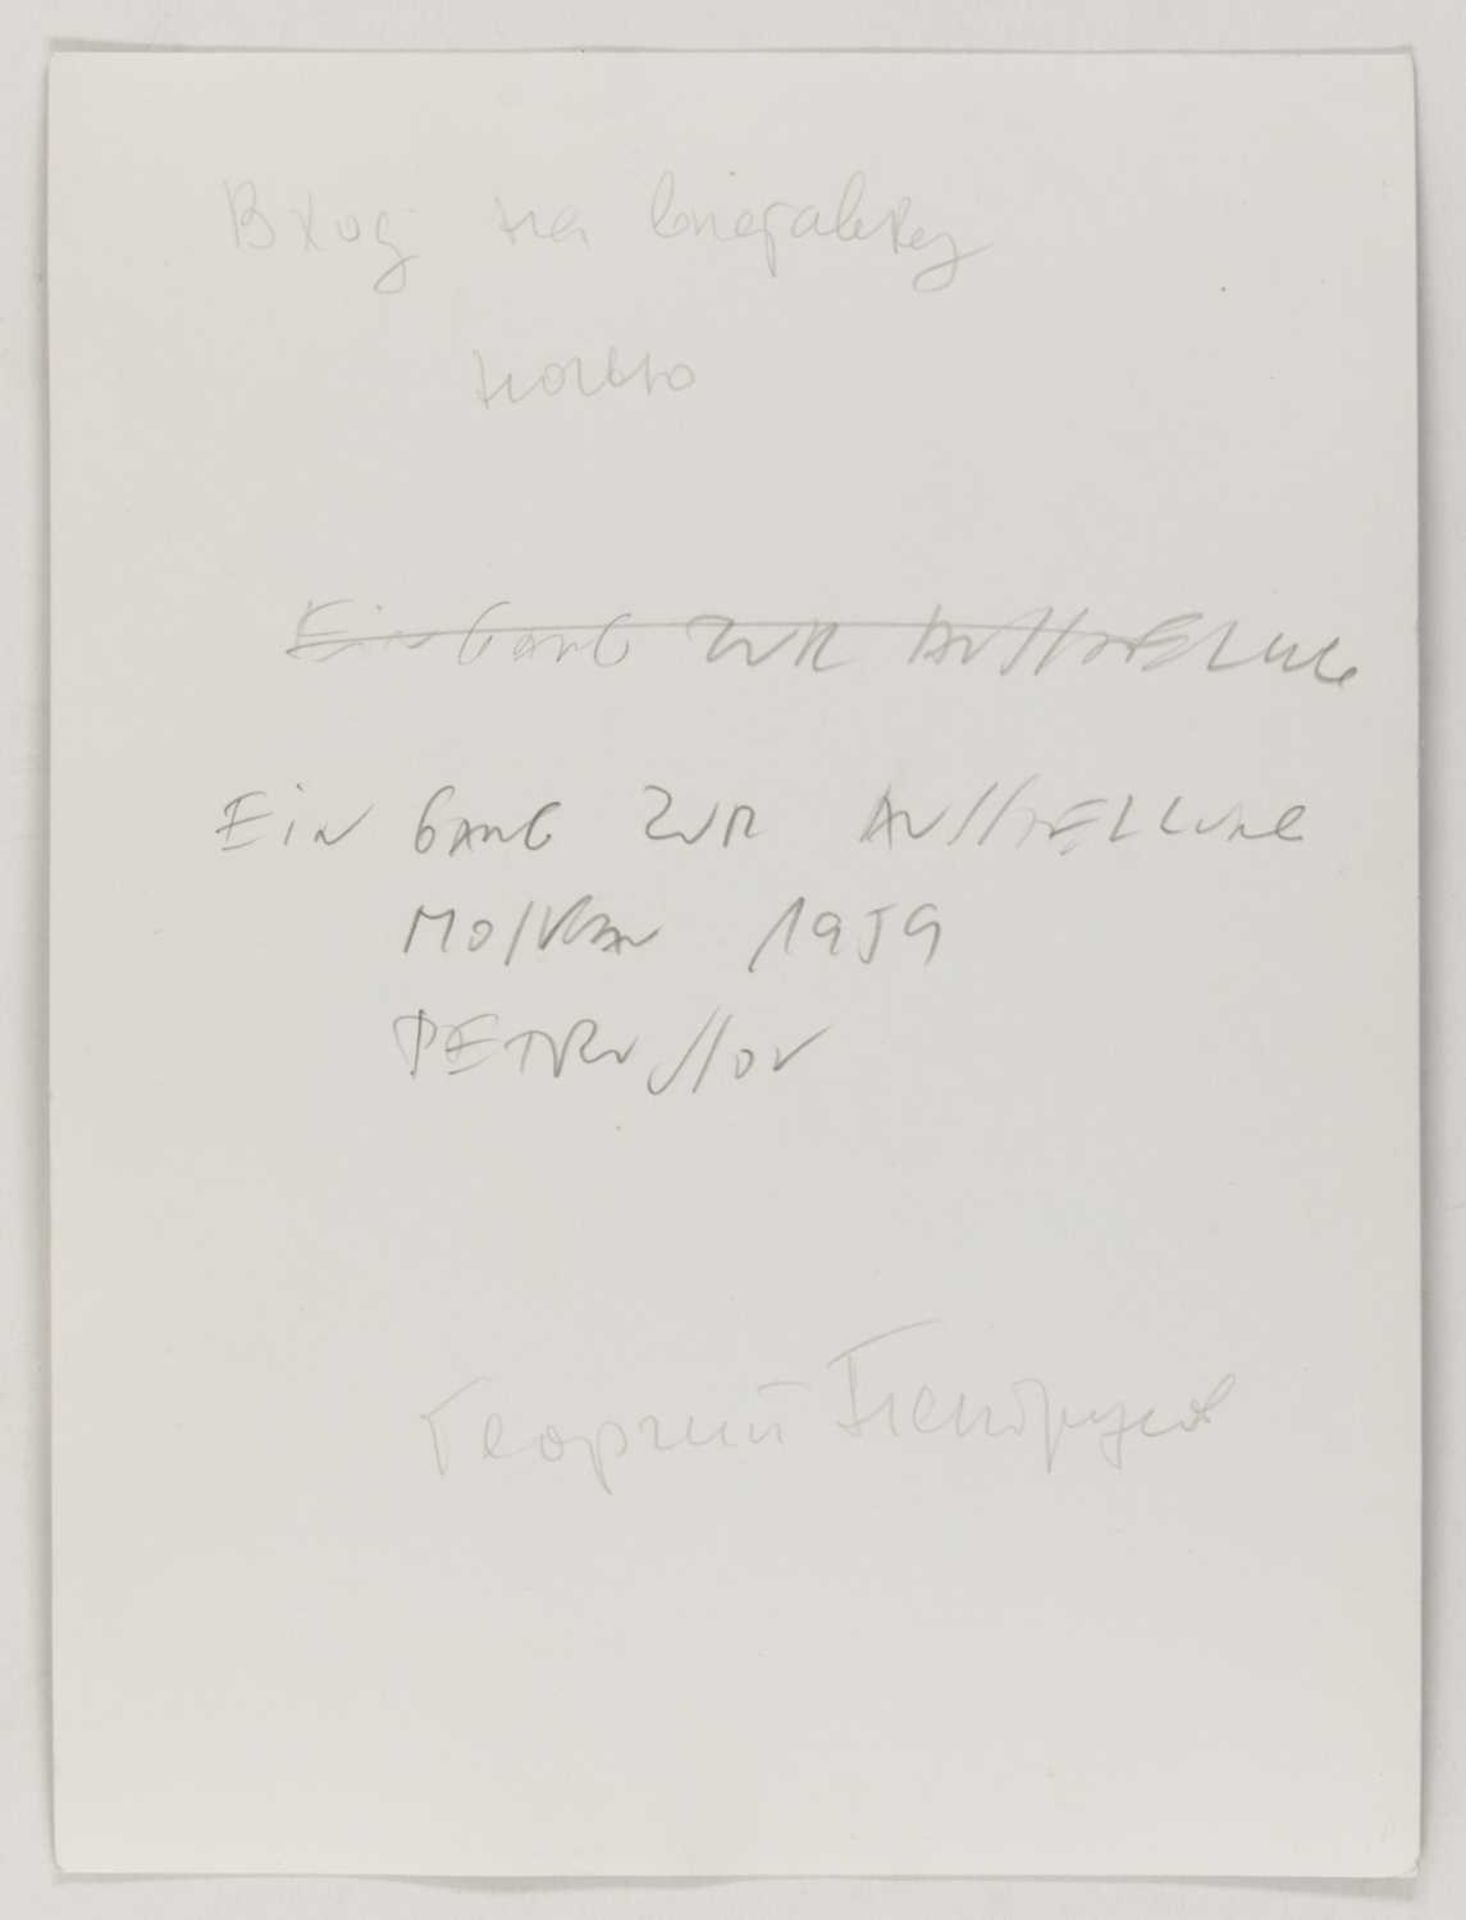 Вход на выставку
ночью
EinGANG ZUR AUSSTELLUNG
EiN GANG ZUR AUSSTELLUNG
MOSKAU 1959
PETRUSSOV
Георгий Петрусов